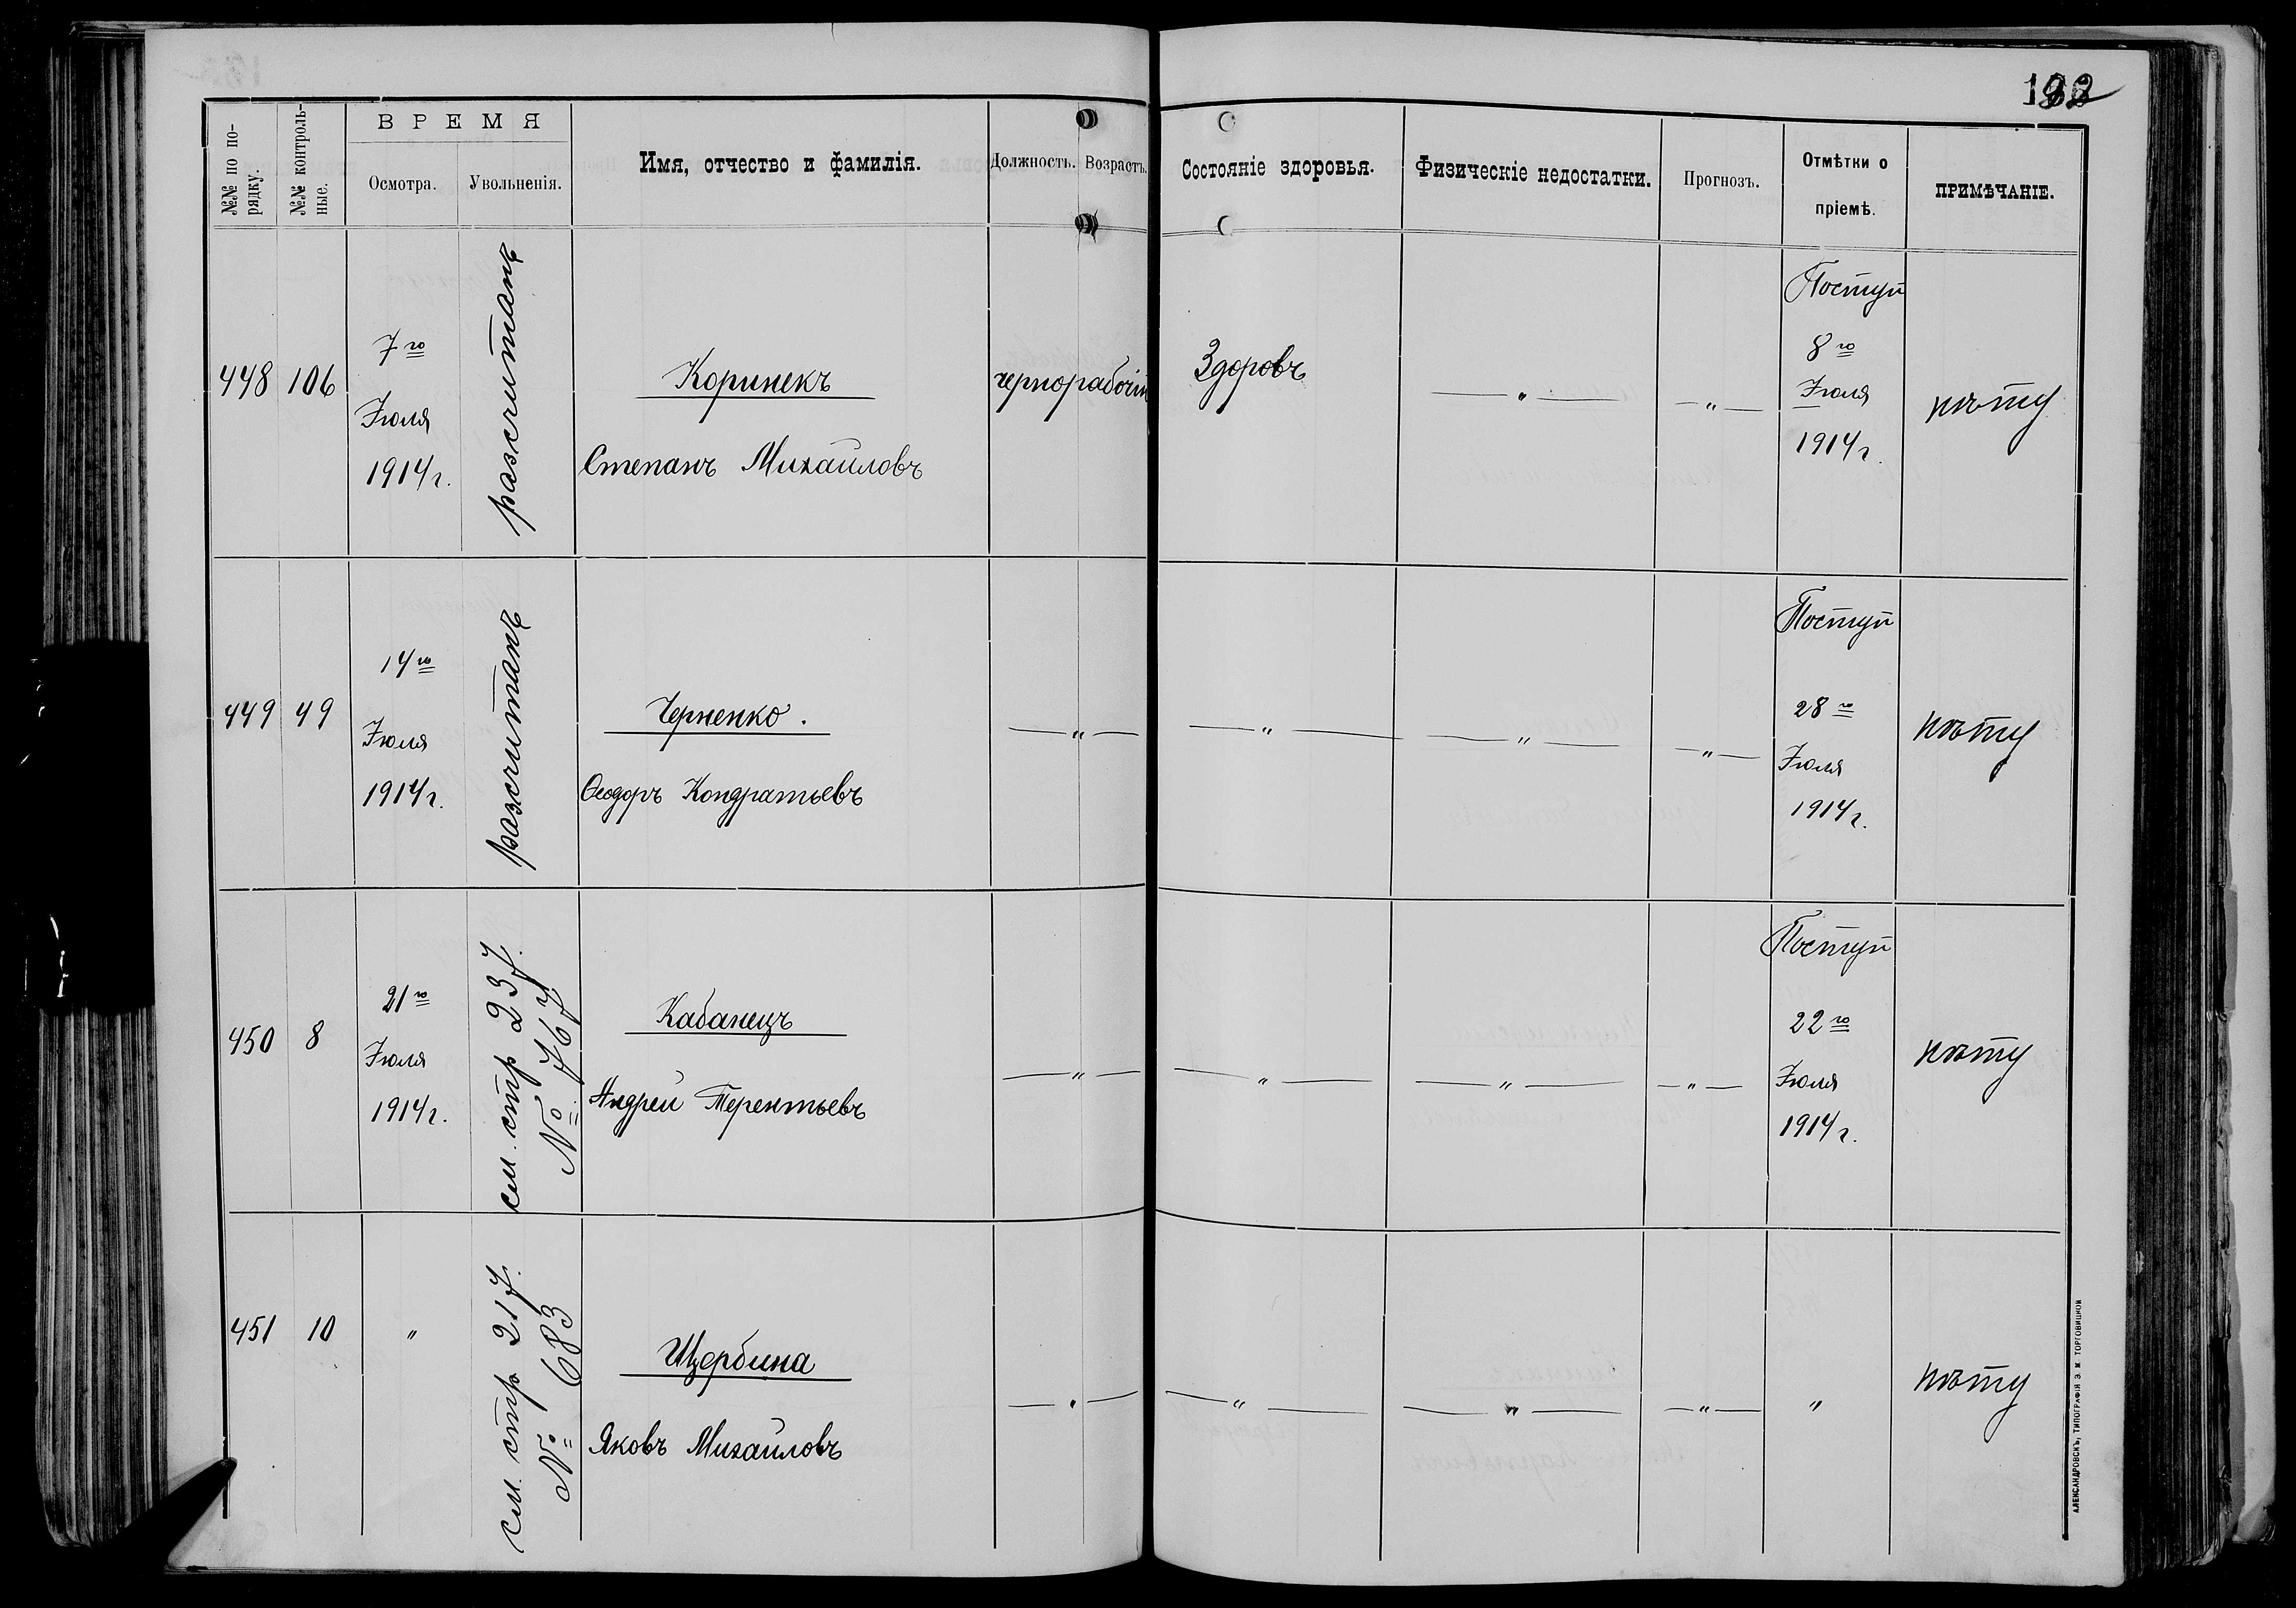 №№ по по-
рядку.
№№ контроль-
ные.
ВРЕМЯ
Осмотра.
Увольненія.
Имя, отчество и фамилія.
Должность.
Возрастъ.
Состояніе здоровья.
Физическіе недостатки.
Прогнозъ.
Отмѣтки о
пріемѣ.
ПРИМѢЧАНІЕ.
448
106
7го
Іюля
1914 г.
разсчитанъ
Коринекъ
Степанъ Михайловъ
чернорабочій
Здоровъ
— „ —
— „ —
Поступ
8го
Іюля
1914 г.
нѣту
449
49
14го
Іюля
1914 г.
разсчитанъ
Черненко.
Ѳеодоръ Кондратьевъ
— „ —
— „ —
— „ —
— „ —
Поступ
28го
Іюля
1914 г.
нѣту
450
8
21го
Іюля
1914 г.
см. стр 237.
№ 767
Кабанецъ
Андрей Терентьевъ
— „ —
— „ —
— „ —
— „ —
Поступ
22го
Іюля
1914 г.
нѣту
451
10
„
см. стр 217.
№ 683
Щербина
Яковъ Михайловъ
— „ —
— „ —
— „ —
— „ —
„
нѣту
АЛЕКСАНДРОВСКЪ, ТИПОГРАФІЯ Э. М. ТОРГОВИЦКОЙ